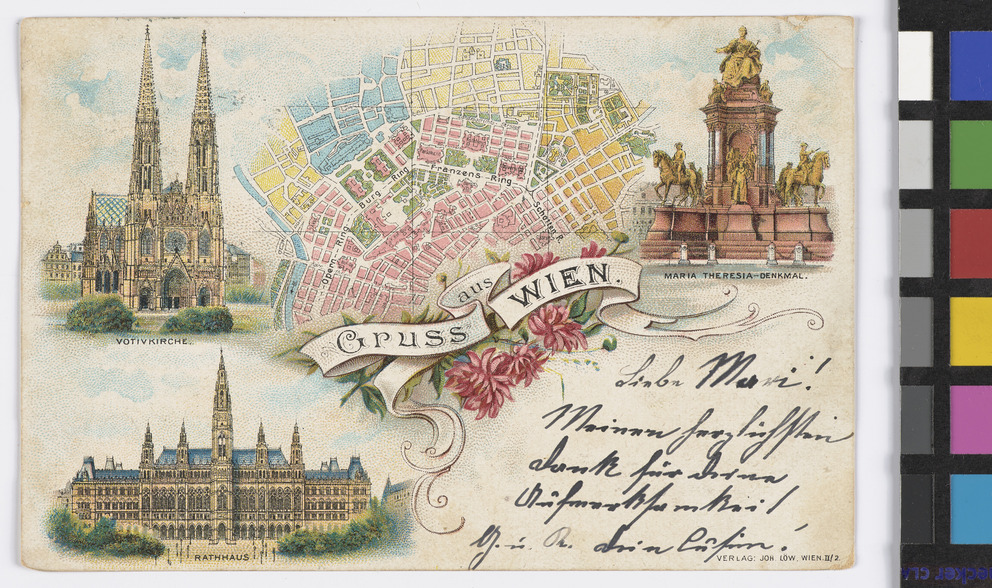 Burg Ring
Franzens-Ring
Schotten R.
Opern-Ring
MARIA THERESIA-DENKMAL.
Gruss aus WIEN.
VOTIVKIRCHE.
Liebe Mari!
Meinen herzlichsten
Dank für Deine
Aufmerksamkeit!
G. u. K. Dein
RATHHAUS
VERLAG: JOH. LÖW, WIEN.II/2.